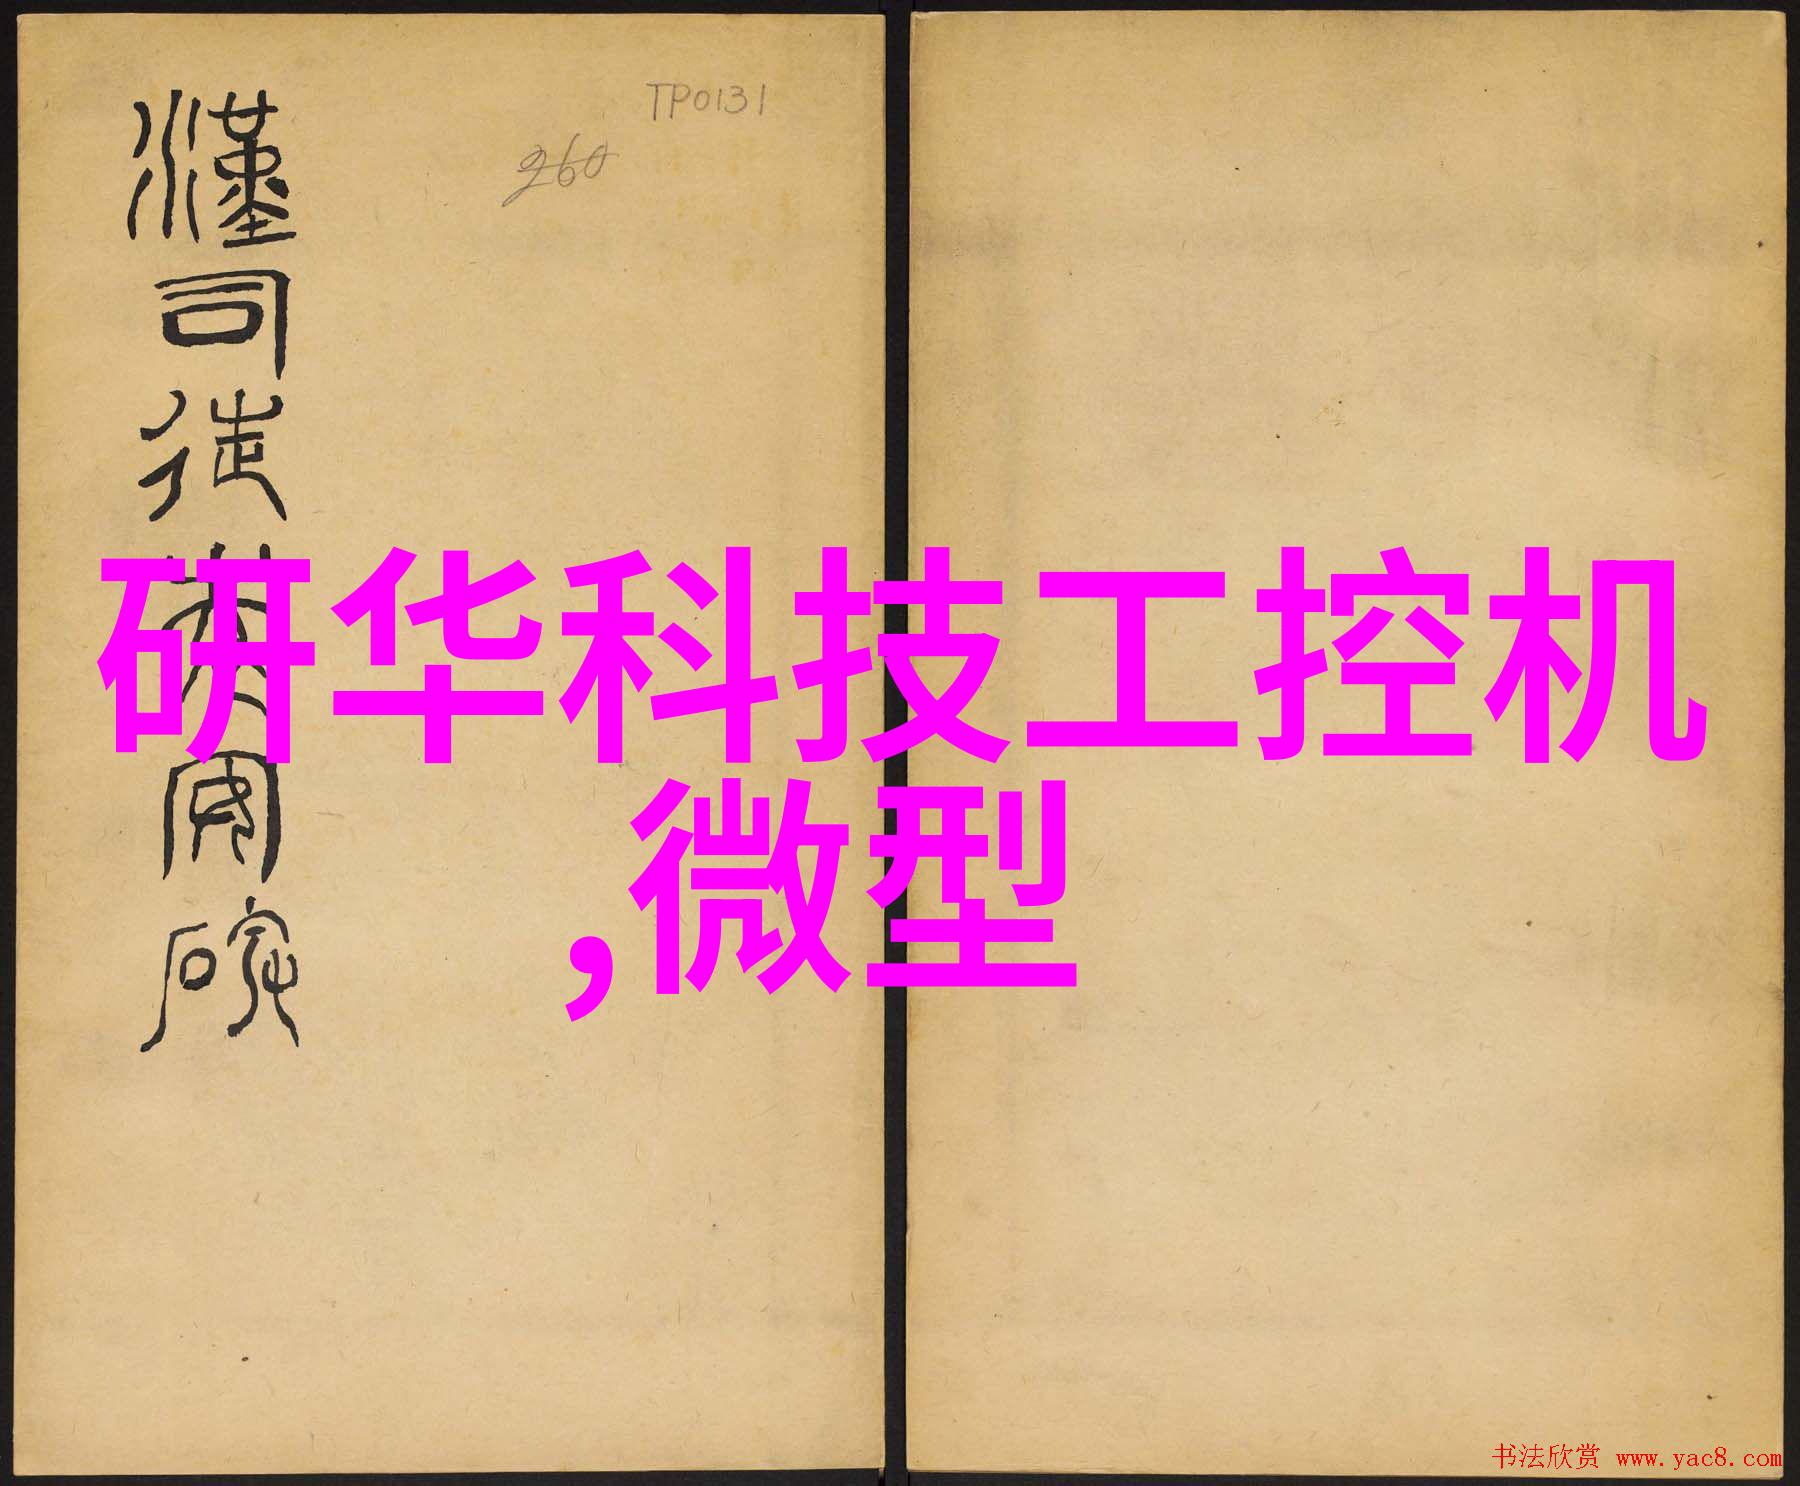 TP0131
260
漢司徒
研华科技工控机
,微型
书法欣赏 www.yac8.com